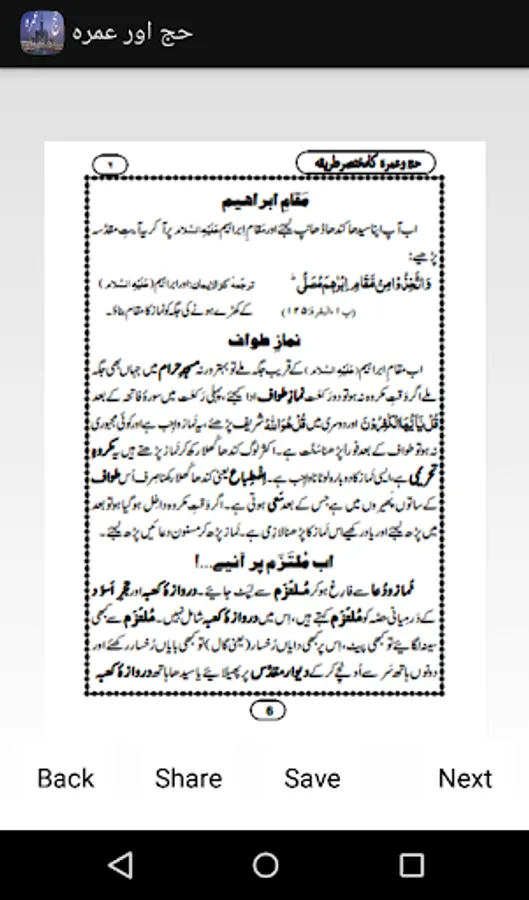 حج اور عمرہ
حج و عمرہ کا مختصر طریقہ
۶
مَقامِ ابراھیم
اب آپ اپنا سیدھا کندھا ڈھانپ لیجئے اور مَقامِ ابراہیم عَلَیْہِ السَّلَام پر آ کر یہ آیتِ مقدَّسہ
پڑھیے:
وَاتَّخِذُوْا مِنْ مَّقَامِ اِبْرٰهٖمَ مُصَلًّی ؕ ترجَمۂ کنز الایمان: اور ابراہیم (عَلَیْہِ السَّلَام)
(پ۱، البقرۃ:۱۲۵) کے کھڑے ہونے کی جگہ کو نماز کا مقام بناؤ۔
نمازِ طواف
اب مقامِ ابراہیم (عَلَیْہِ السَّلَام) کے قریب جگہ ملے تو بہتر ورنہ مسجدِ حرام میں جہاں بھی جگہ
ملے اگر وَقتِ مکروہ نہ ہو تو دو رَکعت نَمازِ طواف ادا کیجئے، پہلی رَکعت میں سورۂ فاتحہ کے بعد
قُلْ یٰۤاَیُّهَا الْكٰفِرُوْنَ اور دوسری میں قُلْ هُوَ اللهُ شریف پڑھئے، یہ نَماز واجِب ہے اور کوئی مجبوری
نہ ہو تو طواف کے بعد فوراً پڑھنا سنّت ہے۔ اکثر لوگ کندھا کُھلا رکھ کر نَماز پڑھتے ہیں یہ مکروہِ
تحریمی ہے، ایسی نَماز کا دوبارہ لوٹانا واجِب ہے۔ اِضْطِباع یعنی کندھا کُھلا رکھنا صِرف اُس طواف
کے ساتوں پَھیروں میں ہے جس کے بعد سَعْی ہوتی ہے۔ اگر وَقتِ مکروہ داخِل ہو گیا ہو تو بعد
میں پڑھ لیجئے اور یاد رکھیے اس نَماز کا پڑھنا لازِمی ہے۔ نَماز پڑھ کر مسنون دعائیں پڑھ لیجئے۔
اب مُلتَزَم پر آئیے...!
نَماز و دُعا سے فارِغ ہو کر مُلتَزَم سے لپٹ جائیے۔ دروازۂ کعبہ اور حَجَرِ اَسْوَد
کے دَرمِیانی حصّہ کو مُلتَزَم کہتے ہیں، اِس میں دروازۂ کعبہ شامل نہیں۔ مُلتَزَم سے کبھی
سینہ لگائیے تو کبھی پیٹ، اِس پر کبھی دایاں رُخسار (یعنی گال) تو کبھی بایاں رُخسار رکھئے اور
دونوں ہاتھ سَر سے اُونچے کر کے دیوارِ مقدَّس پر پھیلائیے یا سیدھا ہاتھ دروازۂ کعبہ
6
Back Share Save Next